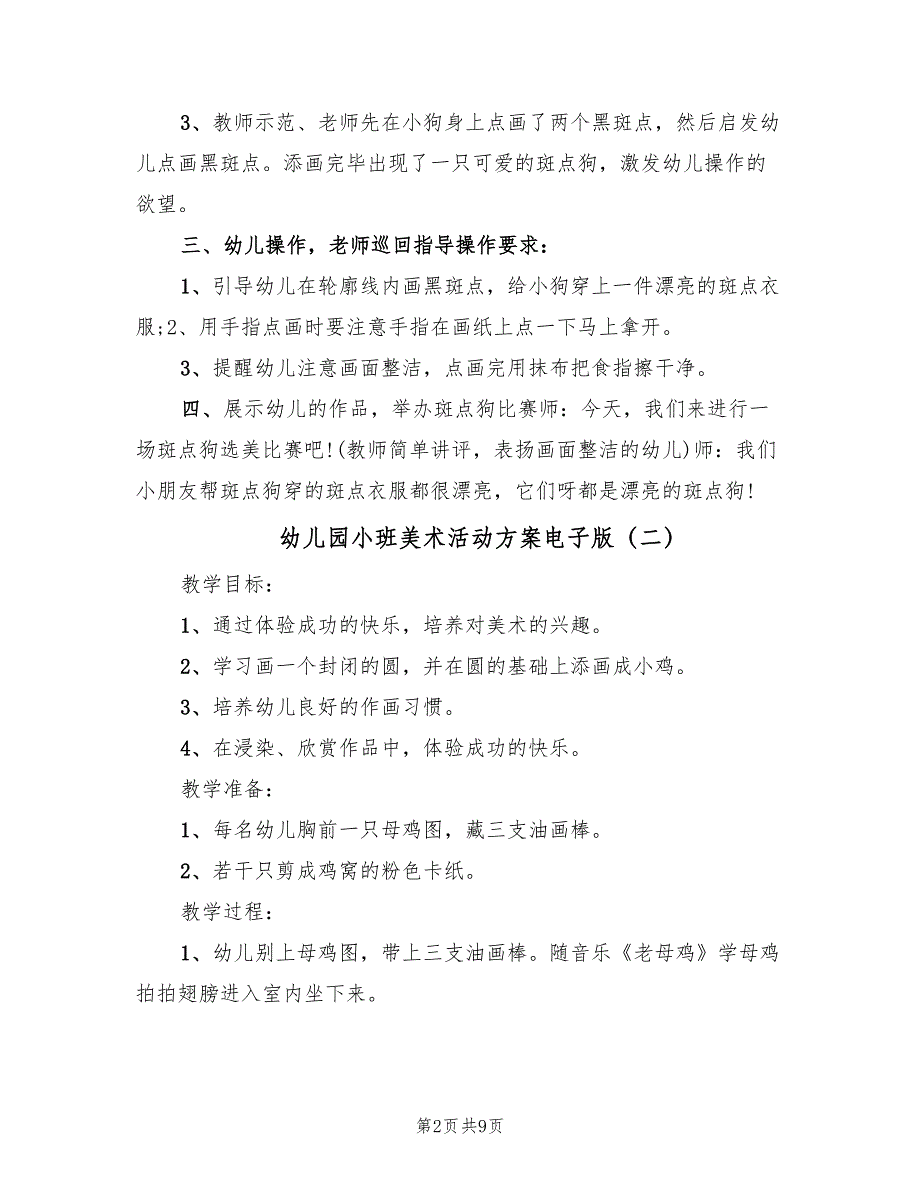 3、教师示范、老师先在小狗身上点画了两个黑斑点，然后启发幼
儿点画黑斑点。添画完毕出现了一只可爱的斑点狗，激发幼儿操作的
欲望。
三、幼儿操作，老师巡回指导操作要求：
1、引导幼儿在轮廓线内画黑斑点，给小狗穿上一件漂亮的斑点衣
服;2、用手指点画时要注意手指在画纸上点一下马上拿开。
3、提醒幼儿注意画面整洁，点画完用抹布把食指擦干净。
四、展示幼儿的作品，举办斑点狗比赛师：今天，我们来进行一
场斑点狗选美比赛吧!(教师简单讲评，表扬画面整洁的幼儿)师：我们
小朋友帮斑点狗穿的斑点衣服都很漂亮，它们呀都是漂亮的斑点狗!
幼儿园小班美术活动方案电子版（二）
教学目标：
1、通过体验成功的快乐，培养对美术的兴趣。
2、学习画一个封闭的圆，并在圆的基础上添画成小鸡。
3、培养幼儿良好的作画习惯。
4、在浸染、欣赏作品中，体验成功的快乐。
教学准备：
1、每名幼儿胸前一只母鸡图，藏三支油画棒。
2、若干只剪成鸡窝的粉色卡纸。
教学过程：
1、幼儿别上母鸡图，带上三支油画棒。随音乐《老母鸡》学母鸡
拍拍翅膀进入室内坐下来。
第2页 共9页